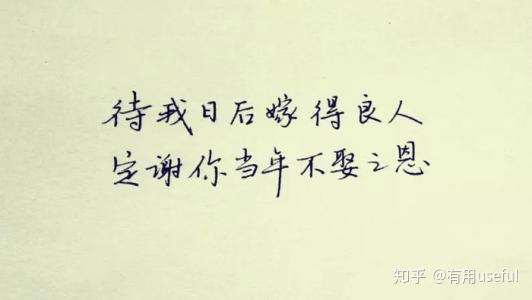 待我日后嫁得良人
定谢你当年不娶之恩
知乎 @有用useful